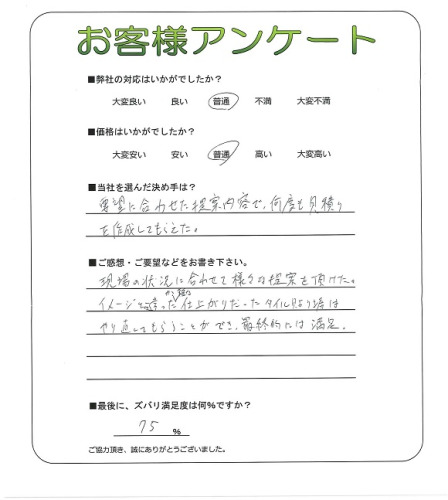 お客様アンケート
■弊社の対応はいかがでしたか？
大変良い 良い 普通 不満 大変不満
■価格はいかがでしたか？
大変安い 安い 普通 高い 大変高い
■当社を選んだ決め手は？
要望に合わせた提案内容で、何度も見積り
を作成してもらえた。
■ご感想・ご要望などをお書き下さい。
現場の状況に合わせて様々な提案を頂けた。
イメージと違った仕上がりだったタイル貼り場は
やり直してもらうことができ、最終的には満足。
■最後に、ズバリ満足度は何%ですか？
75 %
ご協力頂き、誠にありがとうございました。